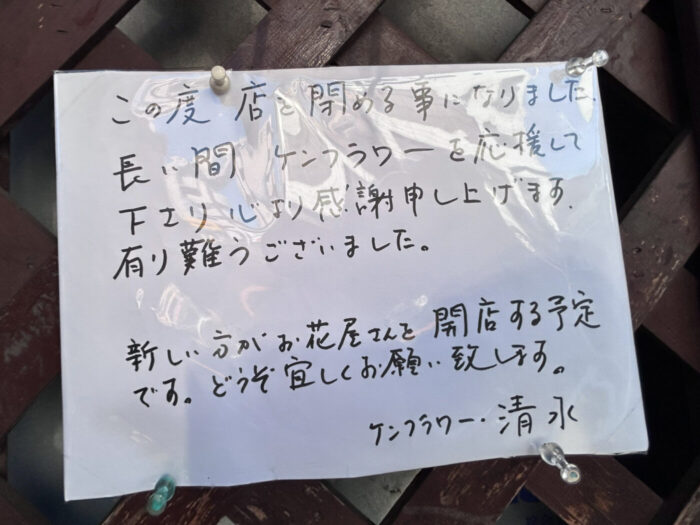 この度 店を閉める事になりました.
長い間 ケンフラワーを応援して
下さり心より感謝申し上げます.
有り難うございました。
新しい方がお花屋さんを開店する予定
です。どうぞ宜しくお願い致します。
ケンフラワー・清水